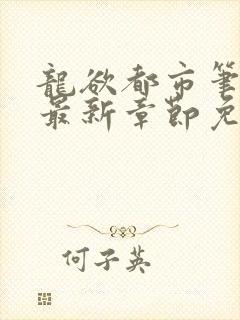 龍欲都市筆
最新章節免
何子英